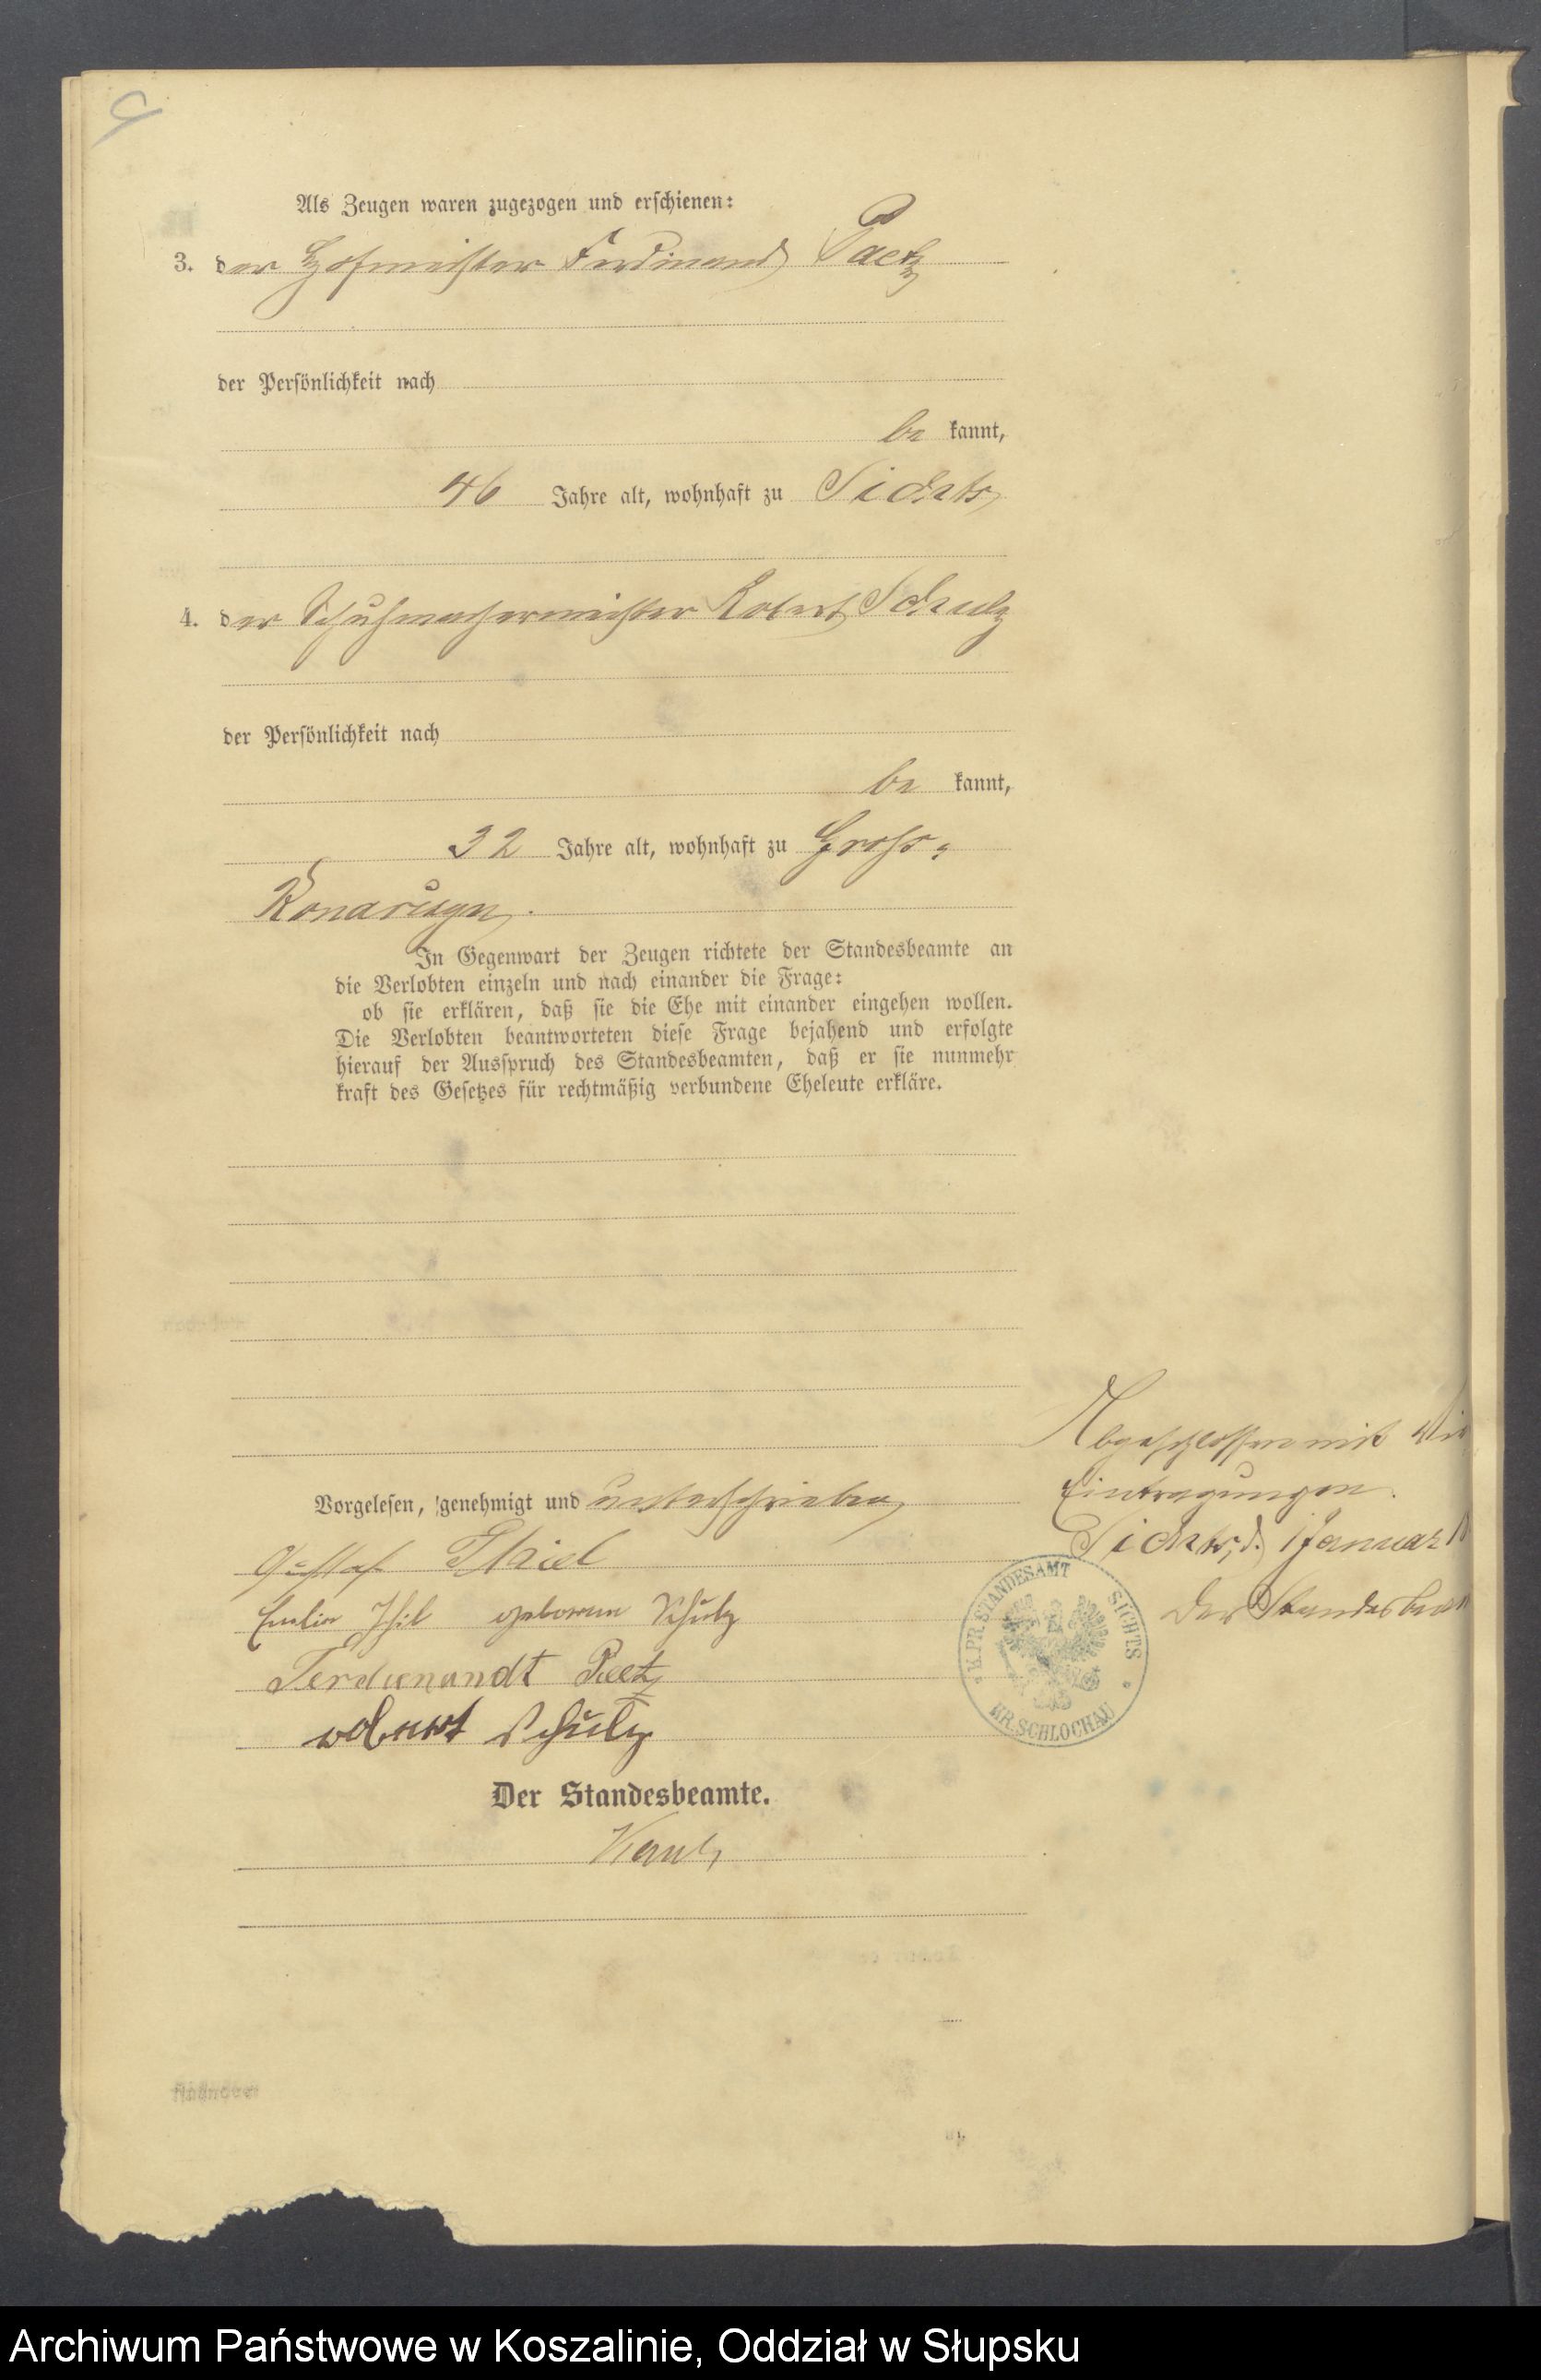 Als Zeugen waren zugezogen und erschienen:
3. der Hofmeister Ferdinand Paetz
der Persönlichkeit nach
be kannt,
46 Jahre alt, wohnhaft zu Sichts
4. der Schuhmachermeister Robert Schulz
der Persönlichkeit nach
be kannt,
32 Jahre alt, wohnhaft zu Gross-
Konarczyn.
In Gegenwart der Zeugen richtete der Standesbeamte an
die Verlobten einzeln und nach einander die Frage:
ob sie erklären, daß sie die Ehe mit einander eingehen wollen.
Die Verlobten beantworteten diese Frage bejahend und erfolgte
hierauf der Ausspruch des Standesbeamten, daß er sie nunmehr
kraft des Gesetzes für rechtmäßig verbundene Eheleute erkläre.
Vorgelesen, genehmigt und unterschrieben
Gustaf Thiel
Emilie Thil geborene Schulz
Ferdienandt Paetz
Schulz
Der Standesbeamte.
Abgeschlossen mit
Eintragungen.
Sichts, d. 1 Januar
Der Standesbeam
K. PR. STANDESAMT SICHTS
KR. SCHLOCHAU
Archiwum Państwowe w Koszalinie, Oddział w Słupsku